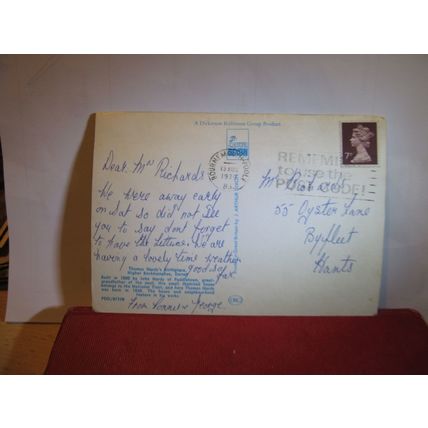 A Dickinson Robinson Group Product
BOURNEMOUTH POOLE
1978
REMEMBER
to use the
POST CODE!
7P
Dear Mrs Richards
We were away early
on Sat so did not see
you to say dont forget
to have the lettuce. We are
having a lovely time weather
good so far
Mrs Richards
55 Oyster Lane
Byfleet
Hants
Thomas Hardy's Birthplace,
Higher Bockhampton, Dorset
Built in 1800 by John Hardy of Puddletown, great-
grandfather of the poet, this small thatched house
belongs to the National Trust, and here Thomas Hardy
was born in 1840. The house and neighbourhood
feature in his works
From Bonnie &amp; George